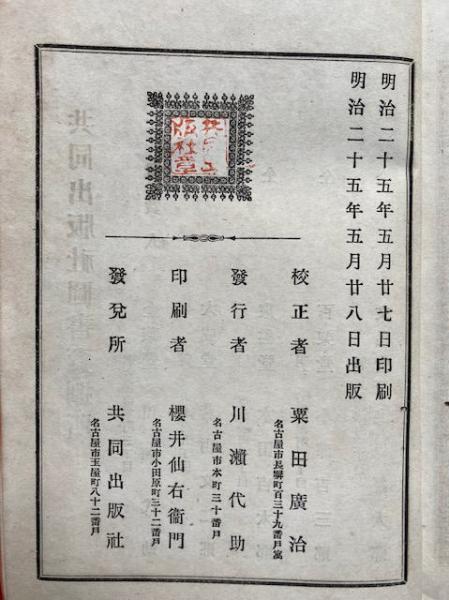 明治二十五年五月廿七日印刷
明治二十五年五月廿八日出版
校正者 粟田廣治
名古屋市長塀町百三十九番戸寓
發行者 川瀬代助
名古屋市本町三十番戸
印刷者 櫻井仙右衞門
名古屋市小田原町三十二番戸
發兌所 共同出版社
名古屋市玉屋町八十二番戸
共同出
版社章